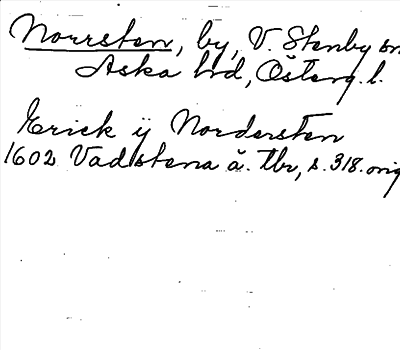 Norrsten, by, V. Stenby sn
Aska hd, Österg. l.
Erick ij Nordersten
1602 Vadstena ä. tbr, s. 318. orig